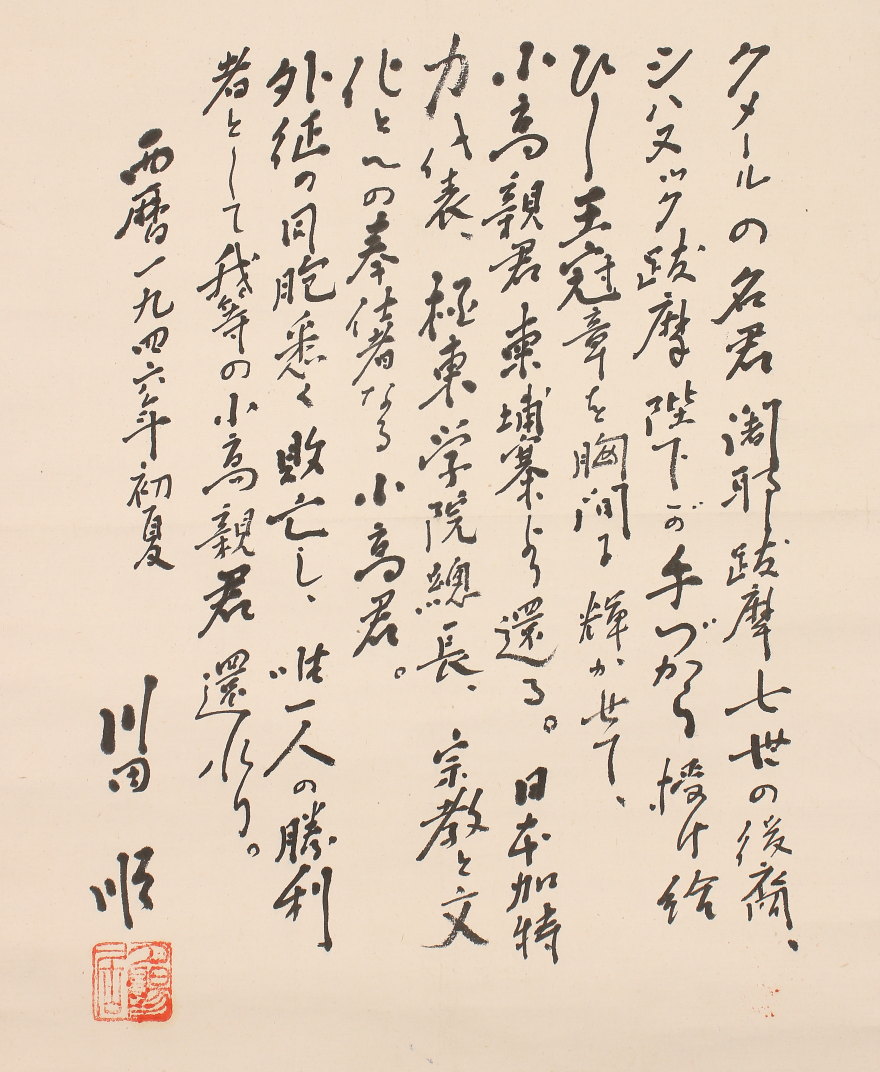 クメールの名君闍耶跋摩七世の後裔、
シハヌック跋摩陛下が手づから授け給
ひし王冠章を胸間に輝かせて、
小高親君柬埔寨より還る。日本加特
力代表、極東学院總長、宗教と文
化とへの奉仕者なる小高君。
外征の同胞悉く敗亡し、唯一人の勝利
者として我等の小高親君還れり。
西暦一九四六年初夏
川田順